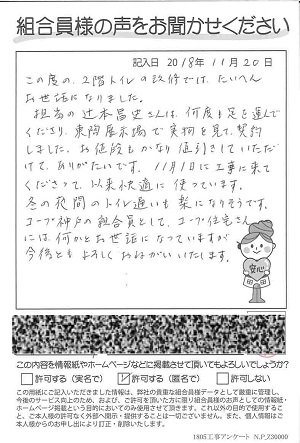 組合員様の声をお聞かせください
記入日 2018年 11月 20日
この度の、2階トイレの改修では、たいへん
お世話になりました。
担当の辻本昌史さんは、何度も足を運んで
くださり、東陶展示場で実物を見て、契約
しました。お値段もかなり値引きしていただ
けて、ありがたいです。11月1日に工事に来て
くださって、以来快適に使っています。
冬の夜間のトイレ通いも楽になりそうです。
コープ神戸の組合員として、コープ住宅さん
には、何かとお世話になっていますが
今後ともよろしくおねがいいたします。
安心
この内容を情報紙やホームページなどに掲載させて頂いてもよろしいでしょうか?
許可する(実名で) 許可する(匿名で) 許可しない
この用紙にご記入いただきました情報は、弊社の貴重な組合員様データとして厳重に管理し、
今後のサービス向上のため、および、ご許可を頂いた方に限り組合員様のお声として情報紙・
ホームページ掲載という目的においてのみ使用させて頂きます。これ以外の目的で使用する
こと、ご本人様の許可なく外部へ開示・提供することは一切ございません。また、個人情報はご
本人様からのお申し出により訂正・削除いたします。
1805工事アンケート N.P_Z30000